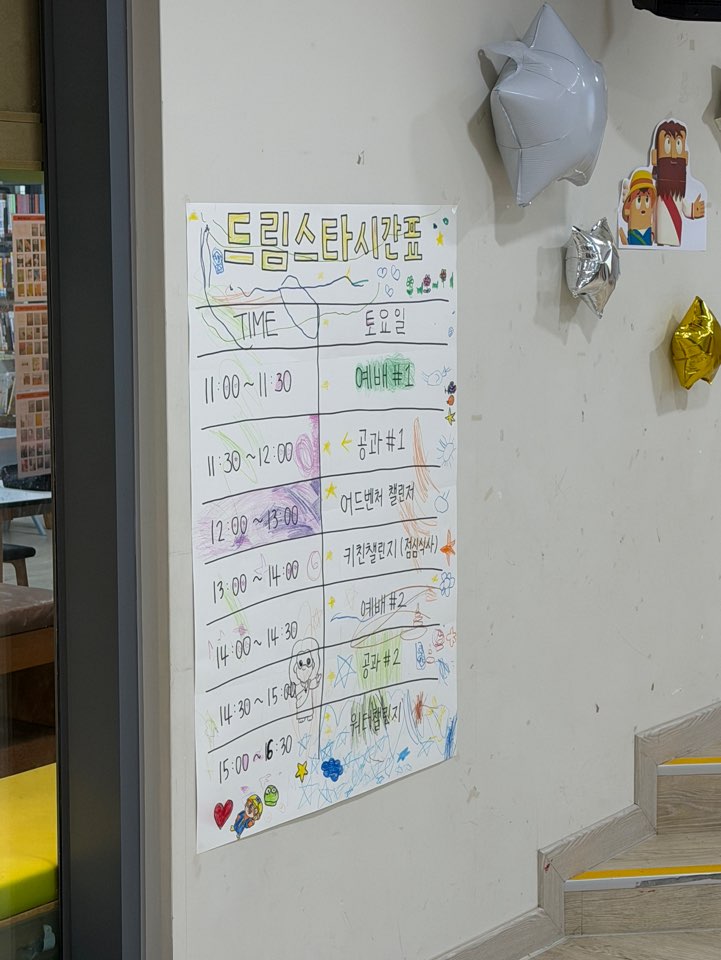 드림스타시간표
TIME 토요일
11:00~11:30 예배 #1
11:30~12:00 공과 #1
12:00~13:00 어드벤처 챌린저
13:00~14:00 키친챌린지 (점심식사)
14:00~14:30 예배 #2
14:30~15:00 공과 #2
15:00~16:30 워터챌린지